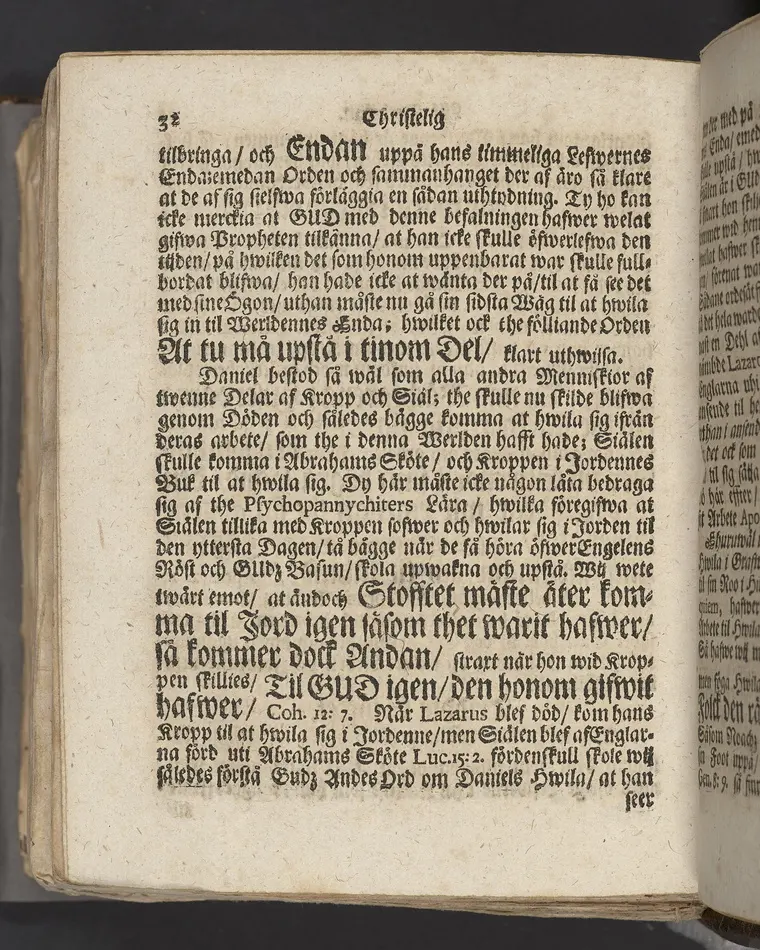 32 Christelig
tilbringa / och Endan uppå hans timmeliga Lefwernes
Enda: emedan Orden och sammanhanget der af äro så klare
at de af sig sielfwa förläggia en sådan uthtydning. Ty ho kan
icke merckia at GUD med denne befalningen hafwer welat
gifwa Propheten tilkänna / at han icke skulle öfwerlefwa den
tijden / på hwilken det som honom uppenbarat war skulle full-
bordat blifwa / han hade icke at wänta der på / til at få see det
med sine Ögon / uthan måste nu gå sin sidsta Wäg til at hwila
sig in til Werldennes Enda; hwilket ock the fölliande Orden
At tu må upstå i tinom Del / klart uthwisa.
Daniel bestod så wäl som alla andra Menniskior af
twenne Delar af Kropp och Siäl; the skulle nu skilde blifwa
genom Döden och således bägge komma at hwila sig ifrån
deras arbete / som the i denna Werlden hafft hade; Siälen
skulle komma i Abrahams Sköte / och Kroppen i Jordennes
Buk til at hwila sig. Dy här måste icke någon låta bedraga
sig af the Psychopannychiters Lära / hwilka föregifwa at
Siälen tillika med Kroppen sofwer och hwilar sig i Jorden til
den yttersta Dagen / tå bägge när de få höra öfwer Engelens
Röst och GUDz Basun / skola upwakna och upstå. Wij wete
twärt emot / at ändoch Stofftet måste åter kom-
ma til Jord igen såsom thet warit hafwer /
så kommer dock Andan / straxt när hon wid Krop-
pen skillies / Til GUD igen / den honom gifwit
hafwer / Coh. 12: 7. När Lazarus blef död / kom hans
Kropp til at hwila sig i Jordenne / men Siälen blef af Englar-
na förd uti Abrahams Sköte Luc. 15: 2. fördenskull skole wij
således förstå Gudz Andes Ord om Daniels Hwila / at han
seer